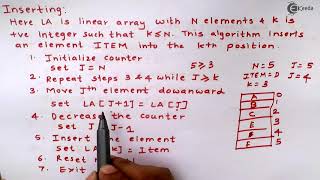 Ekeeda
Inserting:
Here LA is linear array with N elements & k is
+ve integer such that K≤N. This algorithm inserts
an element ITEM into the kth position.
1. Initialize counter
set J = N
5≥3
N=5 J=5
ITEM=D J=4
K=3
2. Repeat steps 3 & 4 while J≥K
3. Move Jth element downward
set LA[J+1] = LA[J]
4. Decrease the counter
set J-1
5. Insert the element
set K] = Item
6. Reset
7. Exit
A 0
B 1
C 2
E 3
4
F 5